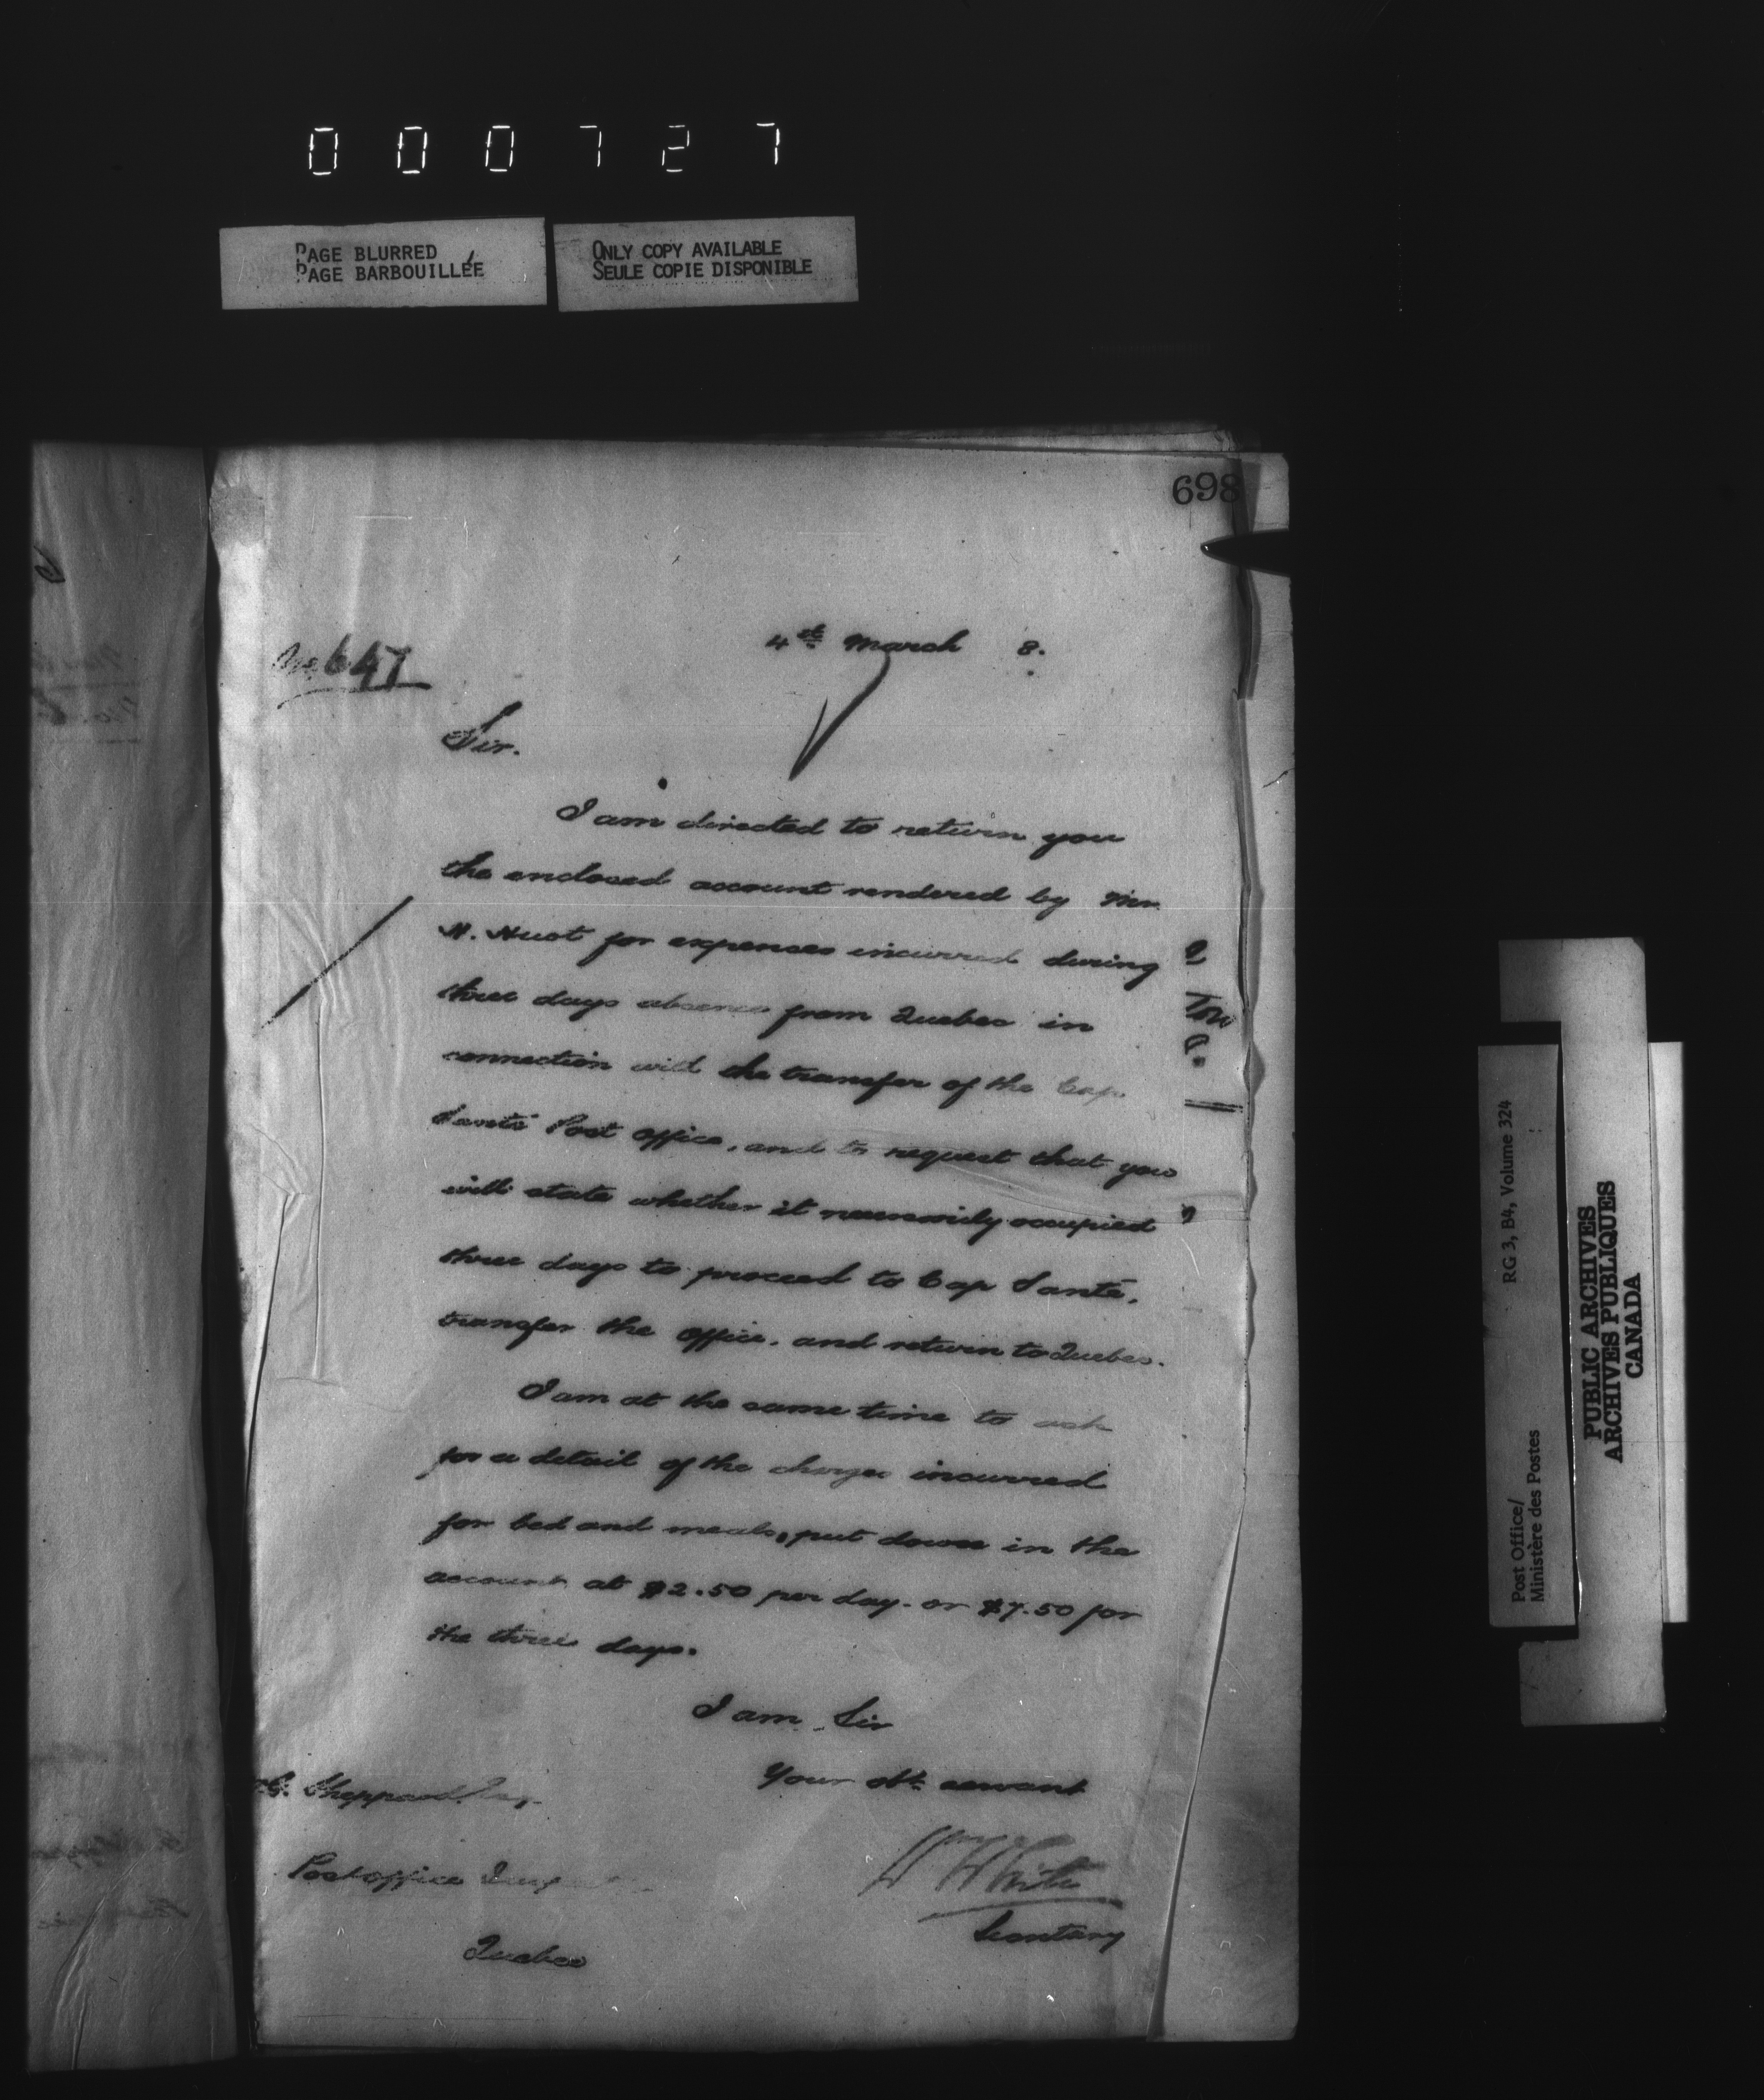 000727
PAGE BLURRED
PAGE BARBOUILLÉE
ONLY COPY AVAILABLE
SEULE COPIE DISPONIBLE
698
No 647
4th March 8.
Sir.
I am directed to return you
the enclosed account rendered by Mr.
H. Huot for expenses incurred during
three days absence from Quebec in
connection with the transfer of the Cap
Santé Post Office, and to request that you
will state whether it necessarily occupied
three days to proceed to Cap Santé,
transfer the office, and return to Quebec.
I am at the same time to ask
for a detail of the charges incurred
for bed and meals, put down in the
account at $2.50 per day. or $7.50 for
the three days.
I am Sir
Your obt. servant
Wm White
Secretary
G. Sheppard Esq.
Post office
Quebec
RG 3, B4, Volume 324
Post Office/
Ministère des Postes
PUBLIC ARCHIVES
ARCHIVES PUBLIQUES
CANADA